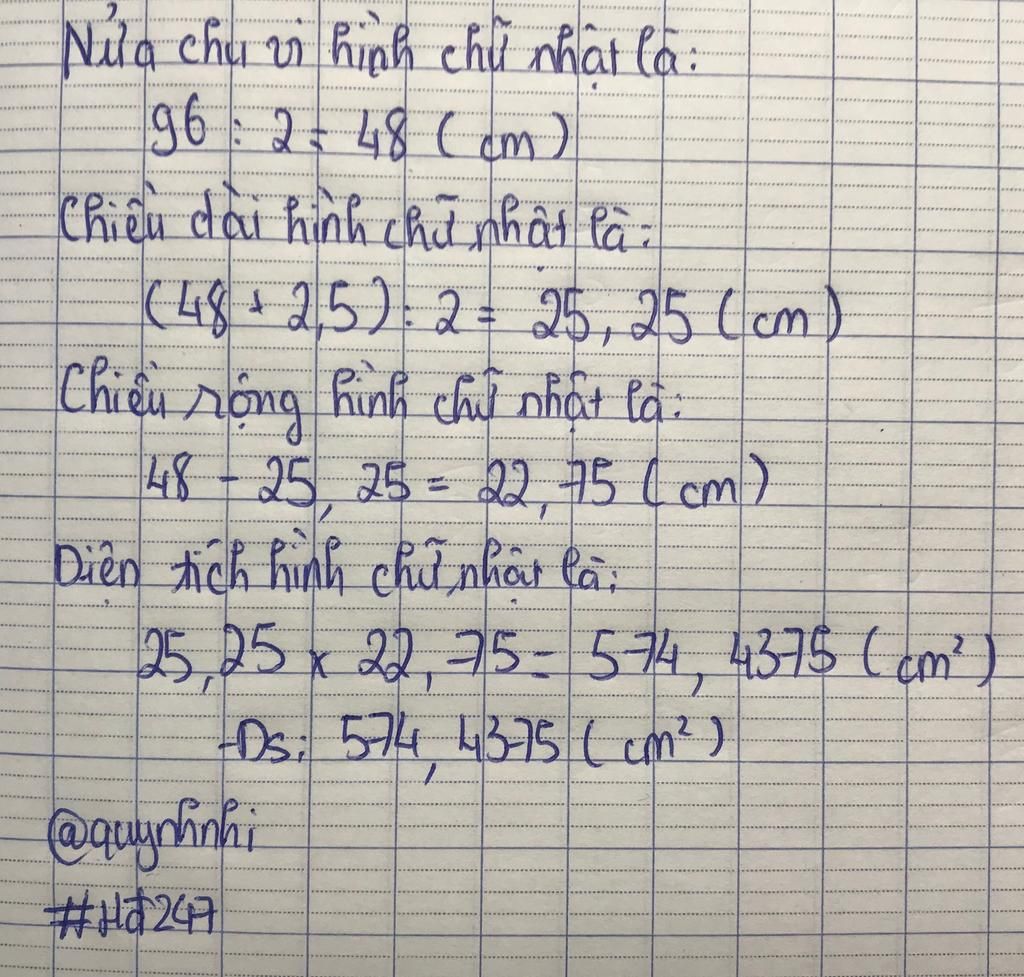 Nửa chu vi hình chữ nhật là:
96 : 2 = 48 ( cm )
Chiều dài hình chữ nhật là:
(48 + 2,5) : 2 = 25,25 ( cm )
Chiều rộng hình chữ nhật là:
48 - 25,25 = 22,75 ( cm )
Diện tích hình chữ nhật là:
25,25 x 22,75 = 574,4375 ( cm² )
Đs: 574,4375 ( cm² )
@quynhnhi
#Hđ247